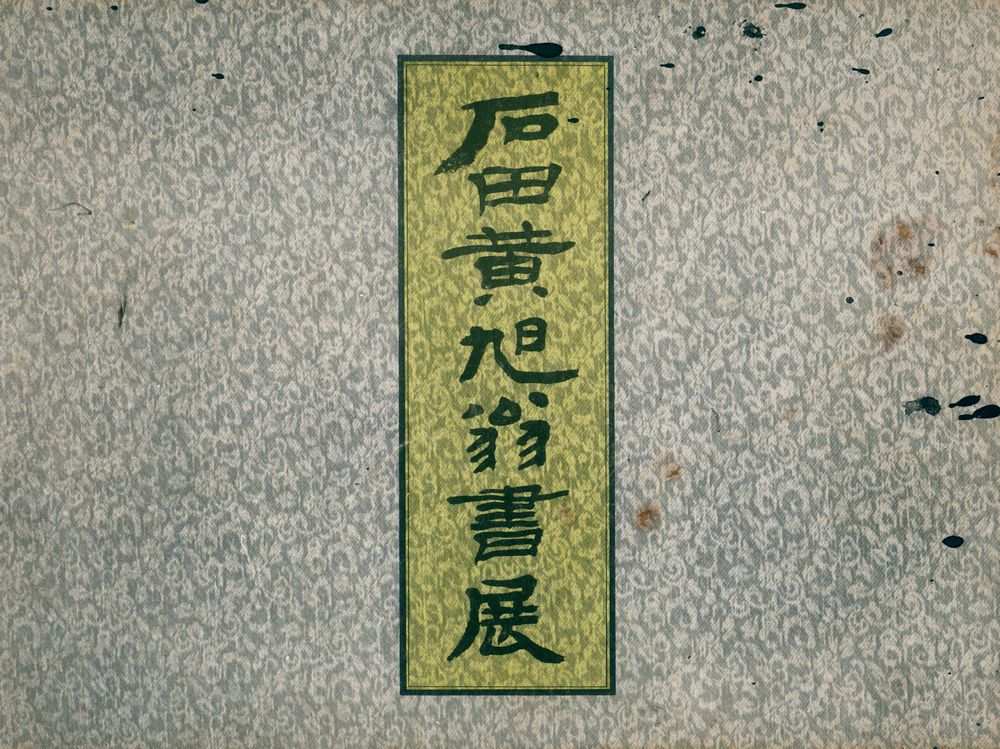 石田黄旭翁書展